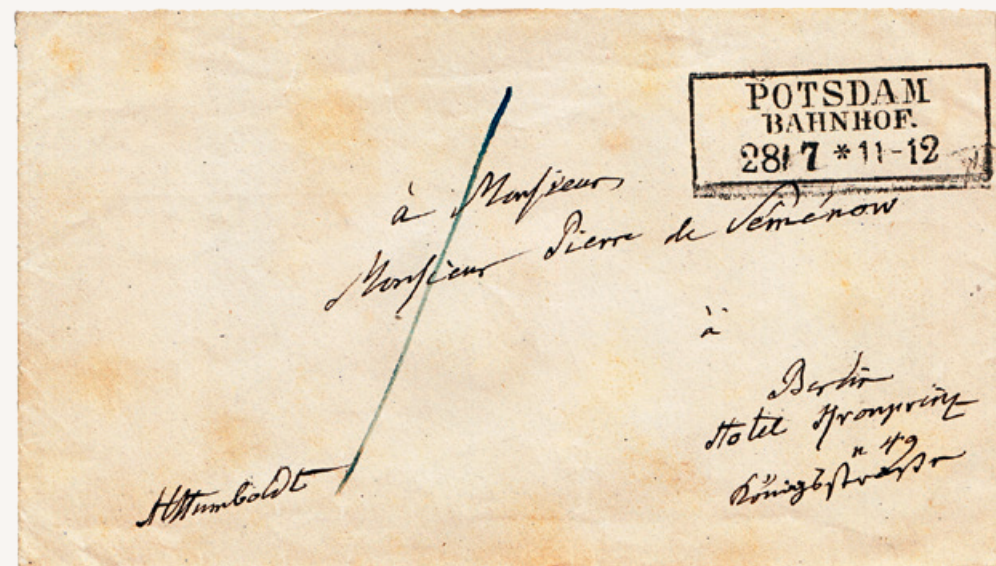 POTSDAM
BAHNHOF.
28/7 * 11-12
à Monsieur
Monsieur Pierre de Séménow
à
Berlin
Hotel Kronprinz
n 49
Königsstraße
AHumboldt